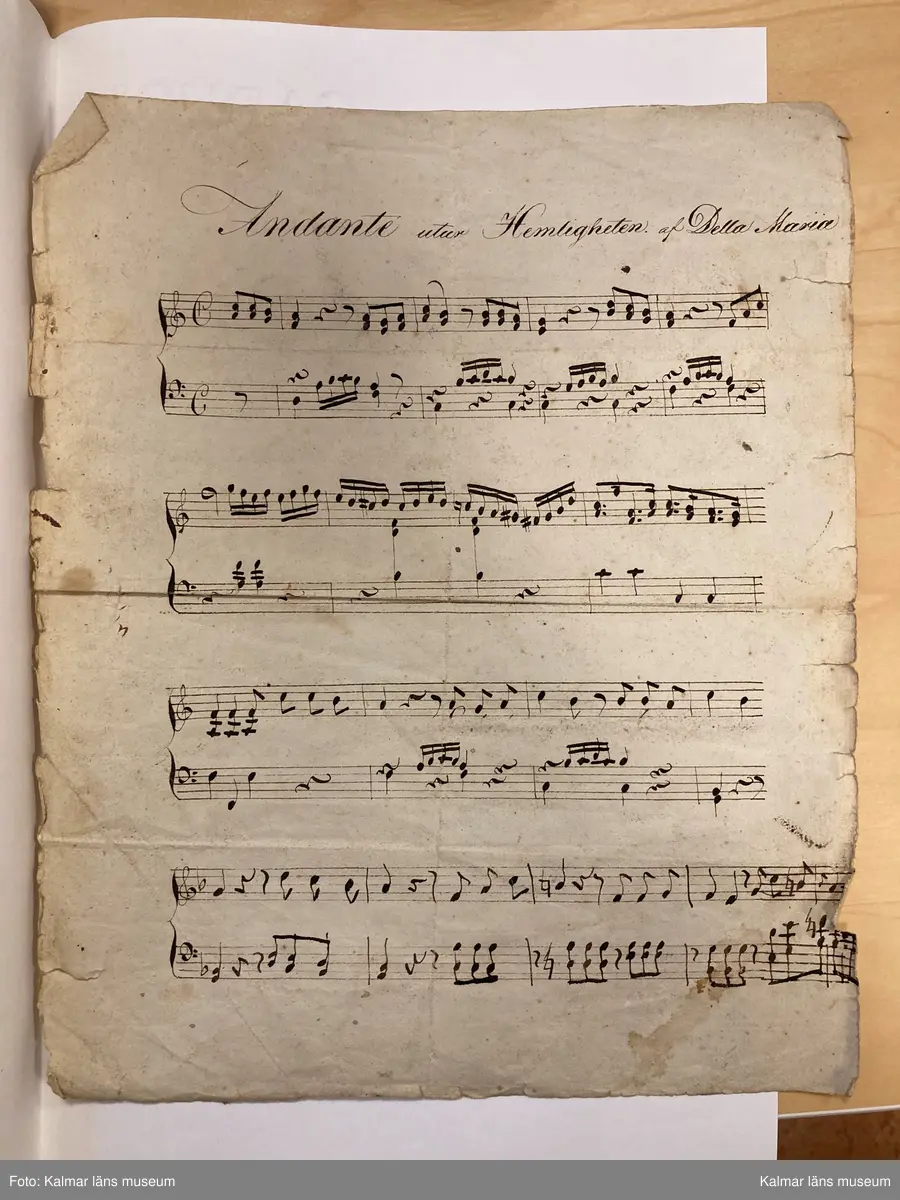 Andante utur Hemligheten af Della Maria
Foto: Kalmar läns museum
Kalmar läns museum